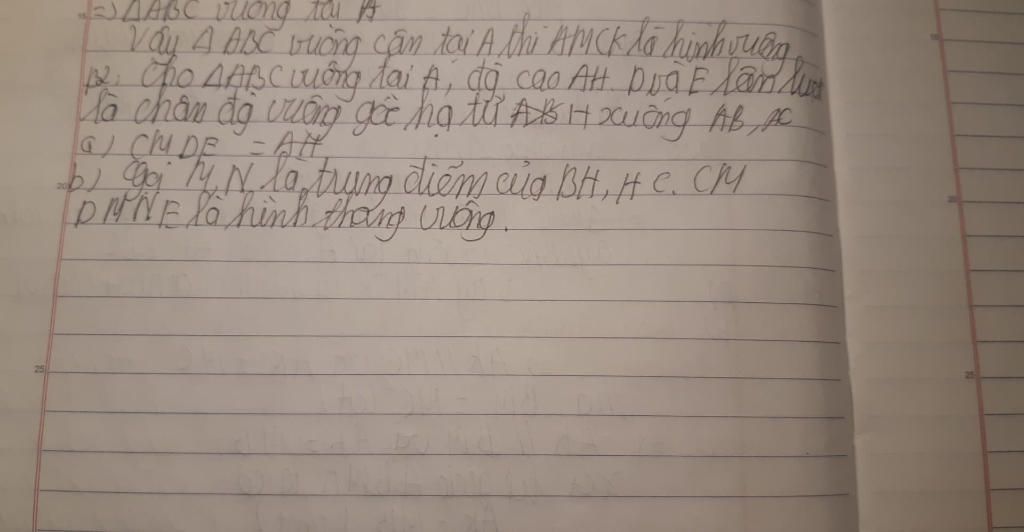 => ΔABC vuông tại A
Vậy Δ ABC vuông cân tại A thì AMCK là hình vuông
B2: Cho ΔABC vuông tại A, độ cao AH. D và E lần lượt
là chân độ vuông góc hạ từ H xuống AB, AC
a) CM DE = AH
20
b) Gọi M, N là trung điểm của BH, HC. CM
DMNE là hình thang vuông.
25
25